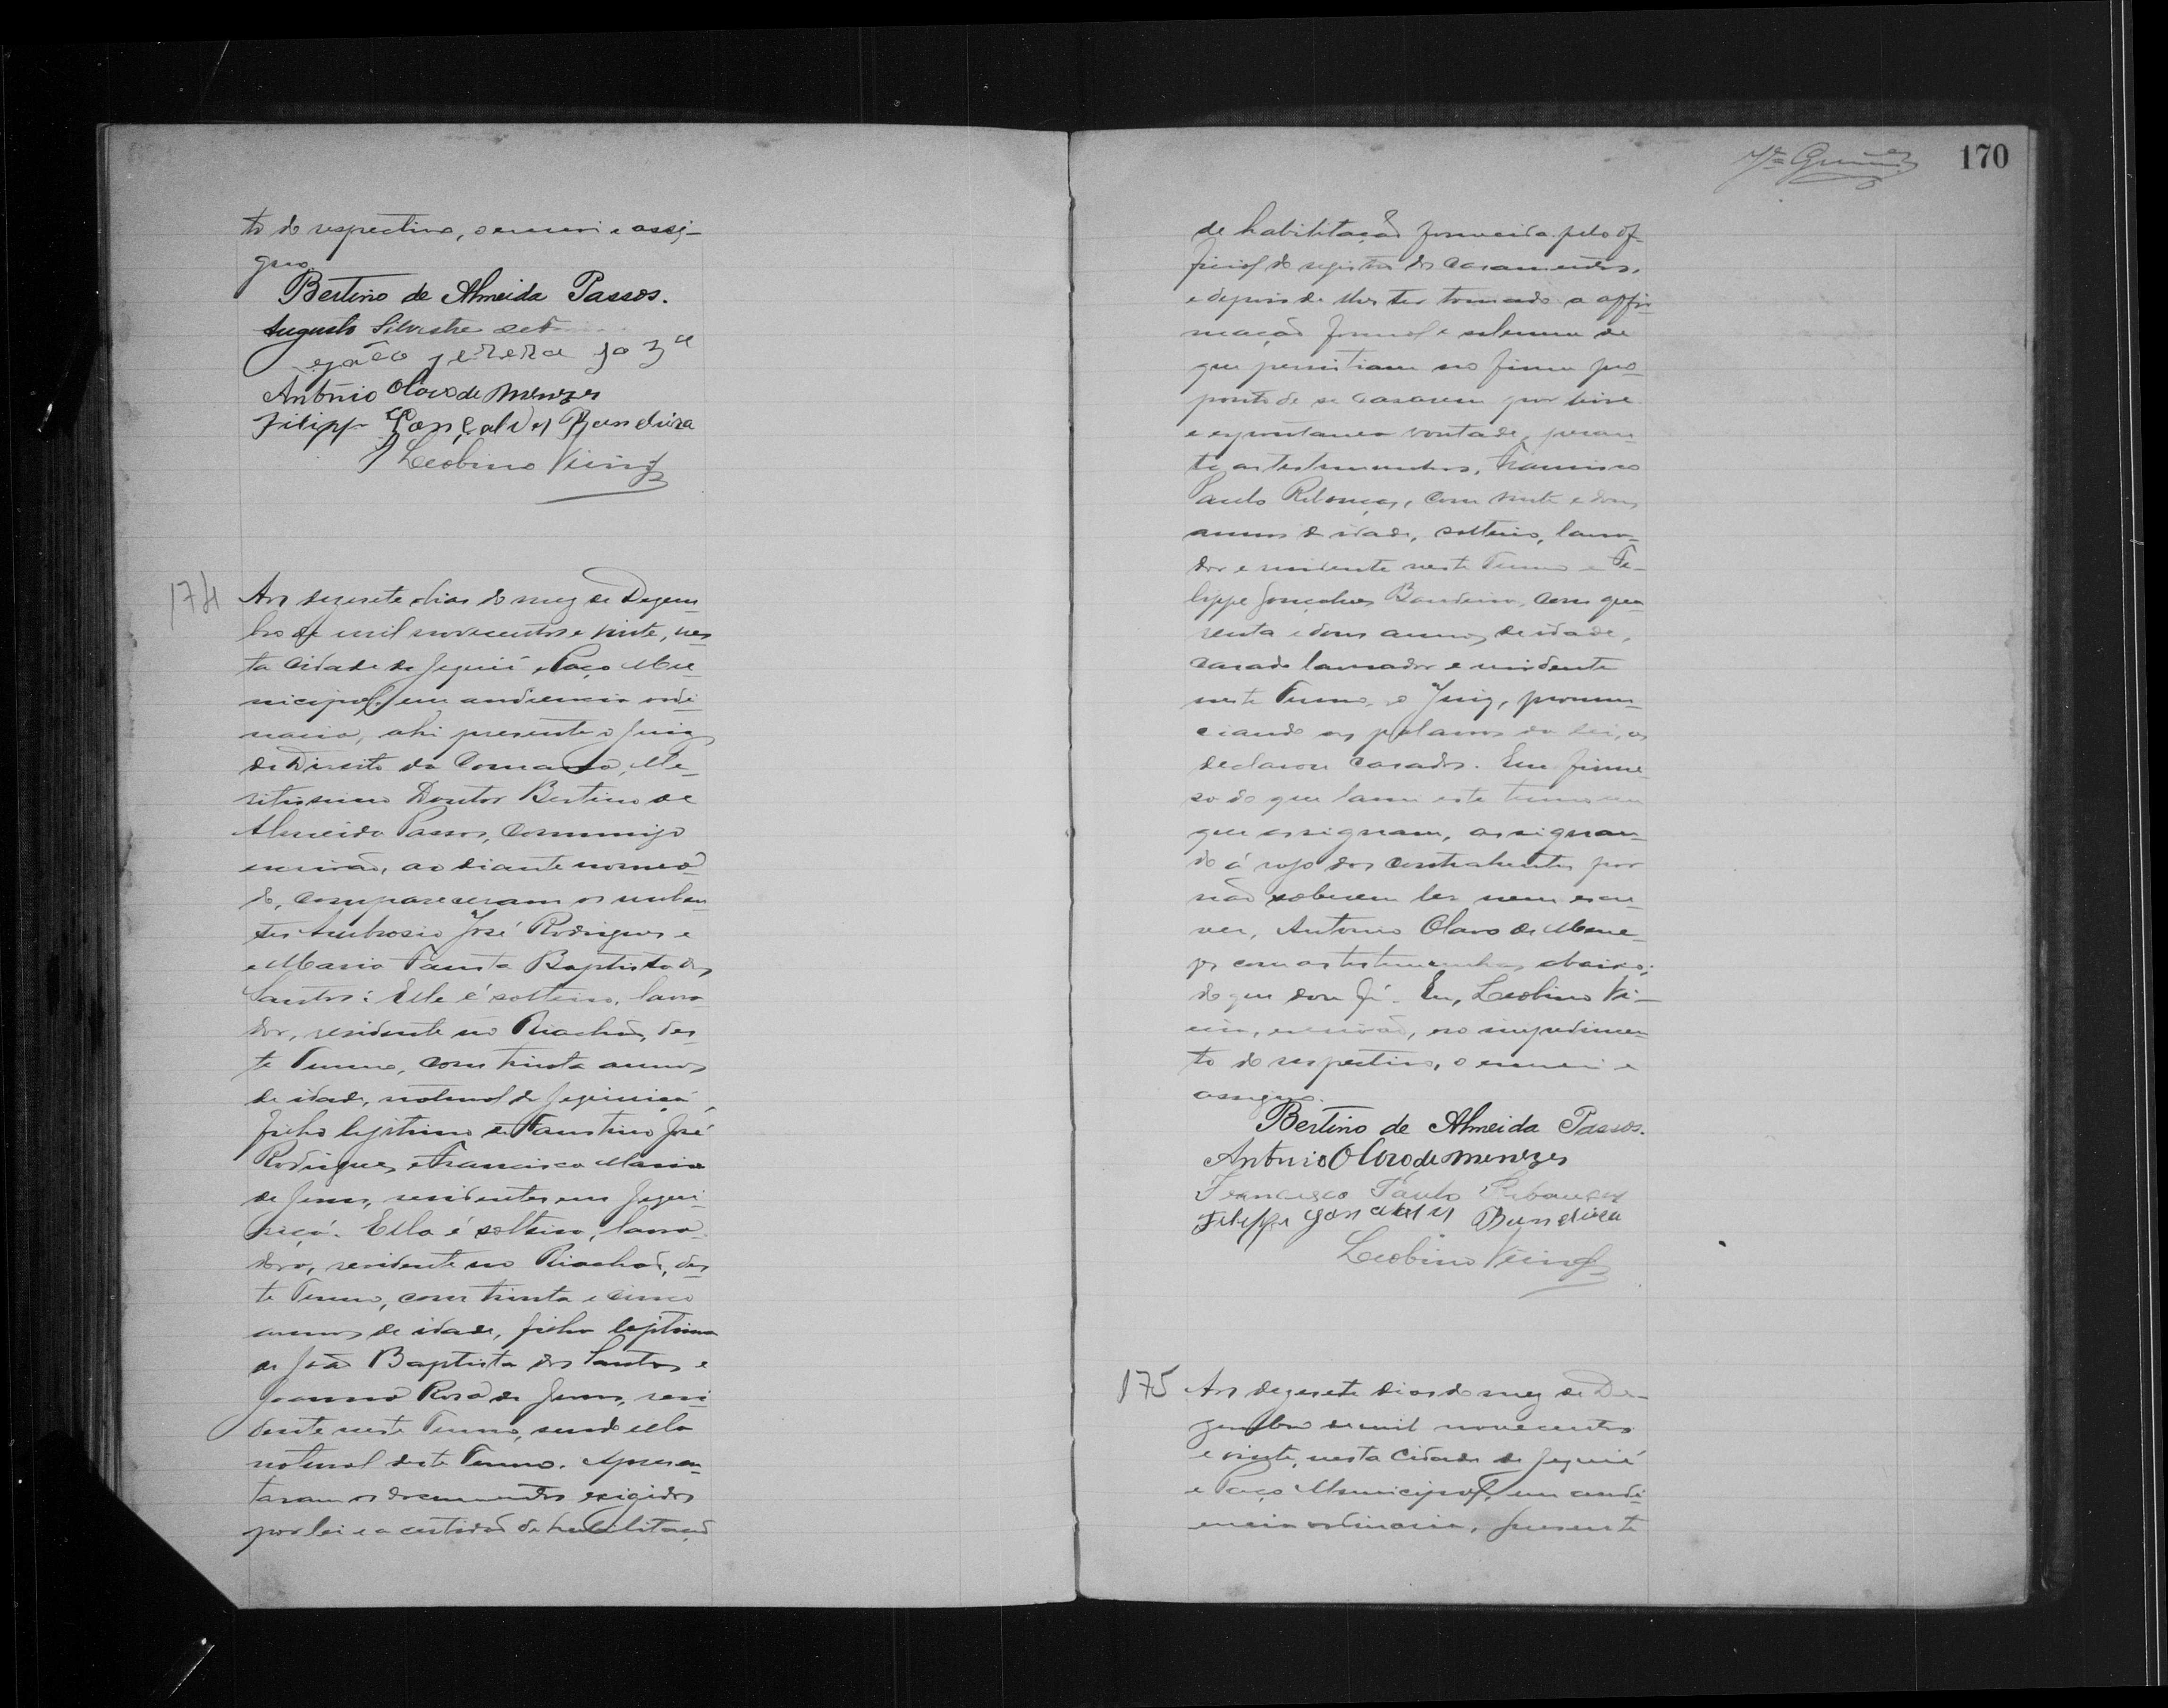 to do respectivo, o escrevi e assi-
gno.
Bertino de Almeida Passos.
Augusto Silvestre
Antonio Olavo de Menezes
Filippe Gonçalves Bandeira
Leobino Vieira
174
Aos dezesete dias do mez de Dezem-
bro de mil novecentos e vinte, nes-
ta Cidade de Jequié e Paço Mu-
nicipal, em audiencia ordi-
naria, ahi presente o Juiz
de Direito da Comarca, Me-
ritissimo Doutor Bertino de
Almeida Passos, commigo
escrivão, ao diante nomea-
do, compareceram os nuben-
tes Ambrosio José Rodrigues e
e Maria Fausta Baptista dos
Santos: Elle é solteiro, lavra-
dor, residente no Riachão, des-
te Termo, com trinta annos
de idade, natural de Jiquiriçá,
filho legitimo de Faustino José
Rodrigues e Francisca Maria
de Jesus, residentes em Jiqui-
riçá. Ella é solteira, lavra-
dora, residente no Riachão, des-
te Termo, com trinta e cinco
annos de idade, filha legitima
de João Baptista dos Santos e
Joanna Rosa de Jesus, resi-
dente neste Termo, sendo ella
natural deste Termo. Apresen-
taram os documentos exigidos
por lei e a certidão de habilitação
170
de habilitação fornecida pelo of-
ficial do registro dos casamentos,
e depois de lhes ter tomado a affir-
mação formal e solemne de
que persistiam no firme pro-
posito de se casarem por livre
e espontanea vontade, peran-
te as testemunhas, Francisco
Paulo Rebouças, com vinte e dous
annos de idade, solteiro, lavra-
dor e residente neste Termo e Fe-
lippe Gonçalves Bandeira, com qua-
renta e dous annos de idade,
casado lavrador e residente
neste Termo, o Juiz, pronun-
ciando as palavras da lei, os
declarou casados. Em firme-
sa do que lavrei este termo em
que assignam, assignan-
do á rogo dos contrahentes por
não saberem ler nem escre-
ver, Antonio Olavo de Mene-
zes com as testemunhas abaixo;
do que dou fé. Eu, Leobino Vi-
eira, escrivão, no impedimen-
to do respectivo, o escrevi e
assigno.
Bertino de Almeida Passos.
Antonio Olavo de Menezes
Francisco Paulo Rebouças
Filippe Gonçalves Bandeira
Leobino Vieira
175
Aos dezesete dias do mez de De-
zembro de mil novecentos
e vinte, nesta Cidade de Jequié
e Paço Municipal, em audi-
encia ordinaria, presente